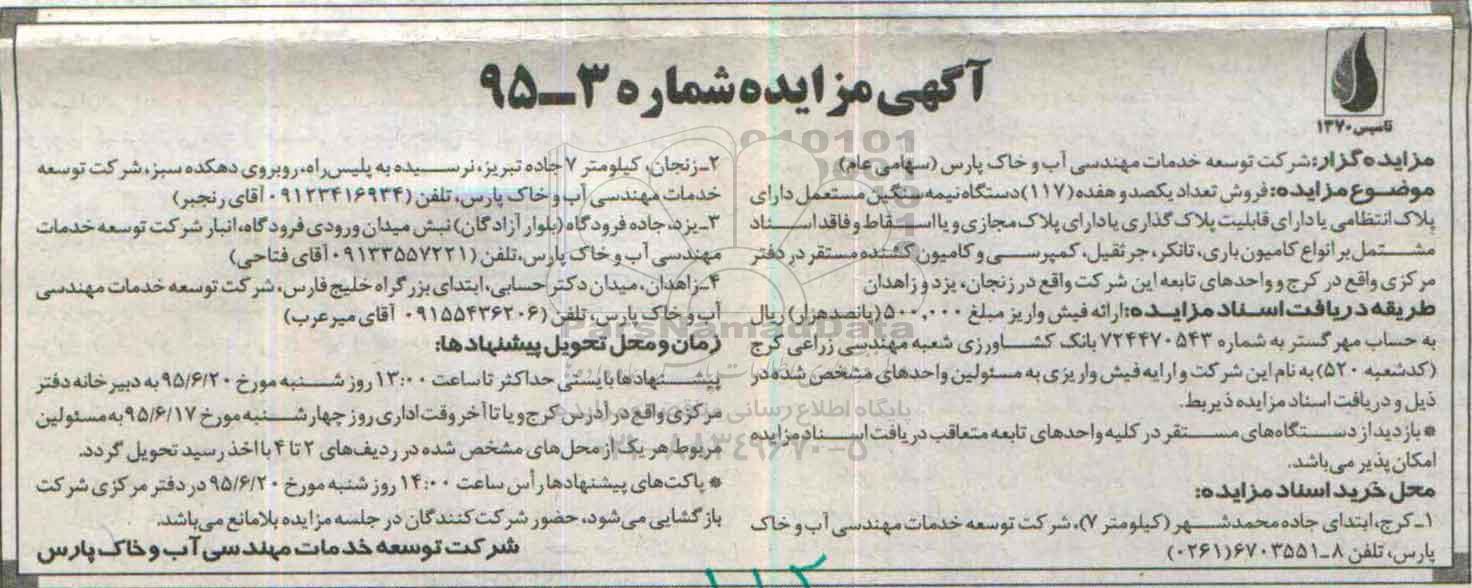 آگهی مزایده شماره ۳ـ۹۵
تاسیس ۱۳۷۰
مزایده گزار: شرکت توسعه خدمات مهندسی آب و خاک پارس (سهامی عام)
موضوع مزایده: فروش تعداد یکصد و هفده (۱۱۷) دستگاه نیمه سنگین مستعمل دارای
پلاک انتظامی یا دارای قابلیت پلاک گذاری یا دارای پلاک مجازی و یا اسقاط و فاقد اسناد
مشتمل بر انواع کامیون باری، تانکر، جرثقیل، کمپرسی و کامیون کشنده مستقر در دفتر
مرکزی واقع در کرج و واحدهای تابعه این شرکت واقع در زنجان، یزد و زاهدان
طریقه دریافت اسناد مزایده: ارائه فیش واریز مبلغ ۵۰۰,۰۰۰ (پانصدهزار) ریال
به حساب مهر گستر به شماره ۷۲۴۴۷۰۵۴۳ بانک کشاورزی شعبه مهندسی زراعی کرج
(کدشعبه ۵۲۰) به نام این شرکت و ارایه فیش واریزی به مسئولین واحدهای مشخص شده در
ذیل و دریافت اسناد مزایده ذیربط.
* بازدید از دستگاه‌های مستقر در کلیه واحدهای تابعه متعاقب دریافت اسناد مزایده
امکان پذیر می‌باشد.
محل خرید اسناد مزایده:
۱ـ کرج، ابتدای جاده محمدشهر (کیلومتر ۷)، شرکت توسعه خدمات مهندسی آب و خاک
پارس، تلفن ۸ـ۶۷۰۳۵۵۱ (۰۲۶۱)
۲ـ زنجان، کیلومتر ۷ جاده تبریز، نرسیده به پلیس راه، روبروی دهکده سبز، شرکت توسعه
خدمات مهندسی آب و خاک پارس، تلفن (۰۹۱۲۳۴۱۶۹۳۴ آقای رنجبر)
۳ـ یزد، جاده فرودگاه (بلوار آزادگان) نبش میدان ورودی فرودگاه، انبار شرکت توسعه خدمات
مهندسی آب و خاک پارس، تلفن (۰۹۱۳۳۵۵۷۲۲۱ آقای فتاحی)
۴ـ زاهدان، میدان دکتر حسابی، ابتدای بزرگراه خلیج فارس، شرکت توسعه خدمات مهندسی
آب و خاک پارس، تلفن (۰۹۱۵۵۴۳۶۲۰۶ آقای میرعرب)
زمان و محل تحویل پیشنهادها:
پیشنهادها بایستی حداکثر تا ساعت ۱۳:۰۰ روز شنبه مورخ ۹۵/۶/۲۰ به دبیرخانه دفتر
مرکزی واقع در آدرس کرج و یا تا آخر وقت اداری روز چهارشنبه مورخ ۹۵/۶/۱۷ به مسئولین
مربوط هر یک از محل‌های مشخص شده در ردیف‌های ۲ تا ۴ با اخذ رسید تحویل گردد.
* پاکت‌های پیشنهادها رأس ساعت ۱۴:۰۰ روز شنبه مورخ ۹۵/۶/۲۰ در دفتر مرکزی شرکت
بازگشایی می‌شود، حضور شرکت کنندگان در جلسه مزایده بلامانع می‌باشد.
شرکت توسعه خدمات مهندسی آب و خاک پارس
ParsNamadData
پایگاه اطلاع رسانی